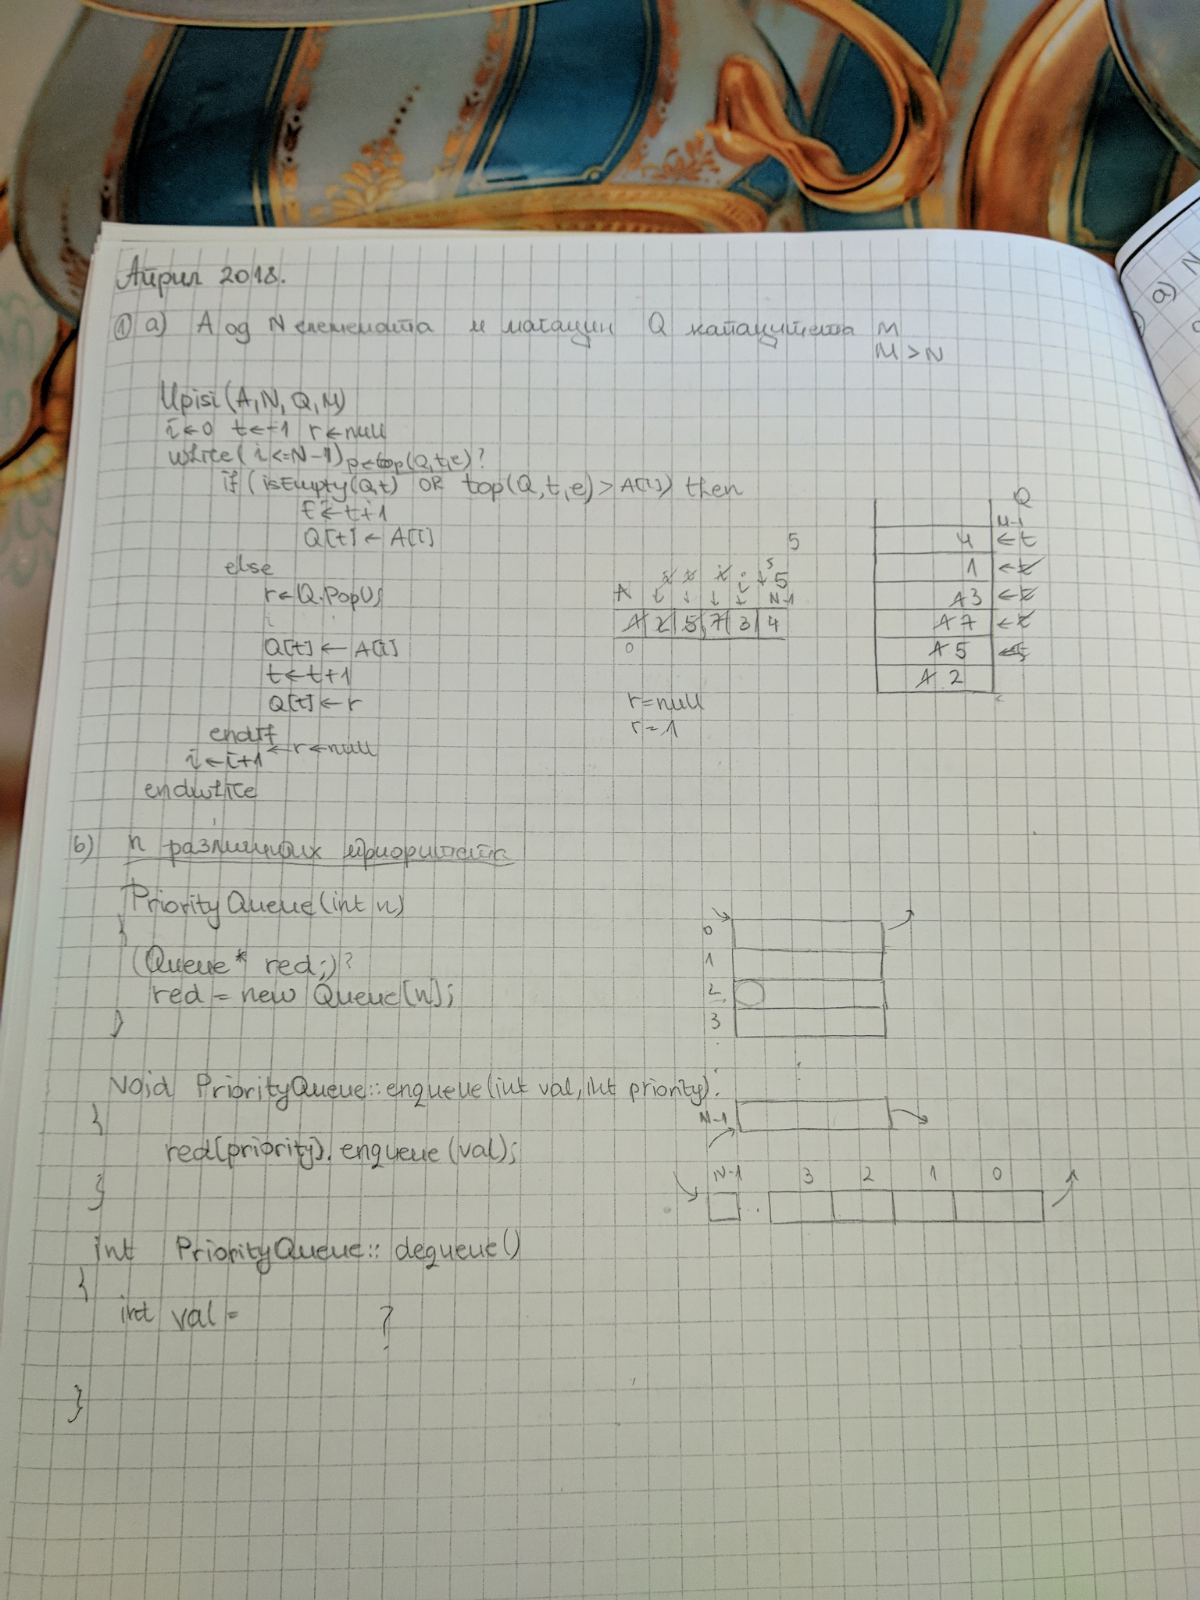 Април 2018.
① а) A од N елемената и магацин Q капацитета M
M > N
Upisi(A,N,Q,M)
i←0 t←-1 r←null
while(i<=N-1) p←top(Q,t,e)?
if (isEmpty(Q,t) OR top(Q,t,e)>A[i]) then
t←t+1
Q[t]←A[i]
else
r←Q.Pop();
Q[t]←A[i]
t←t+1
Q[t]←r
endif
i←i+1 ← r←null
endwhile
5
5
A N-1
1 2 5 7 3 4
0
r=null
r=1
Q
M-1
4 ←t
1 ←t
1 3 ←t
1 7 ←t
1 5
1 2
b) n различитих приоритета
PriorityQueue(int n)
{
(Queue* red;)?
red = new Queue[n];
}
0
1
2
3
N-1
void PriorityQueue::enqueue(int val, int priority).
{
red[priority].enqueue(val);
}
N-1 3 2 1 0
int PriorityQueue::dequeue()
{
int val = ?
}
а) N